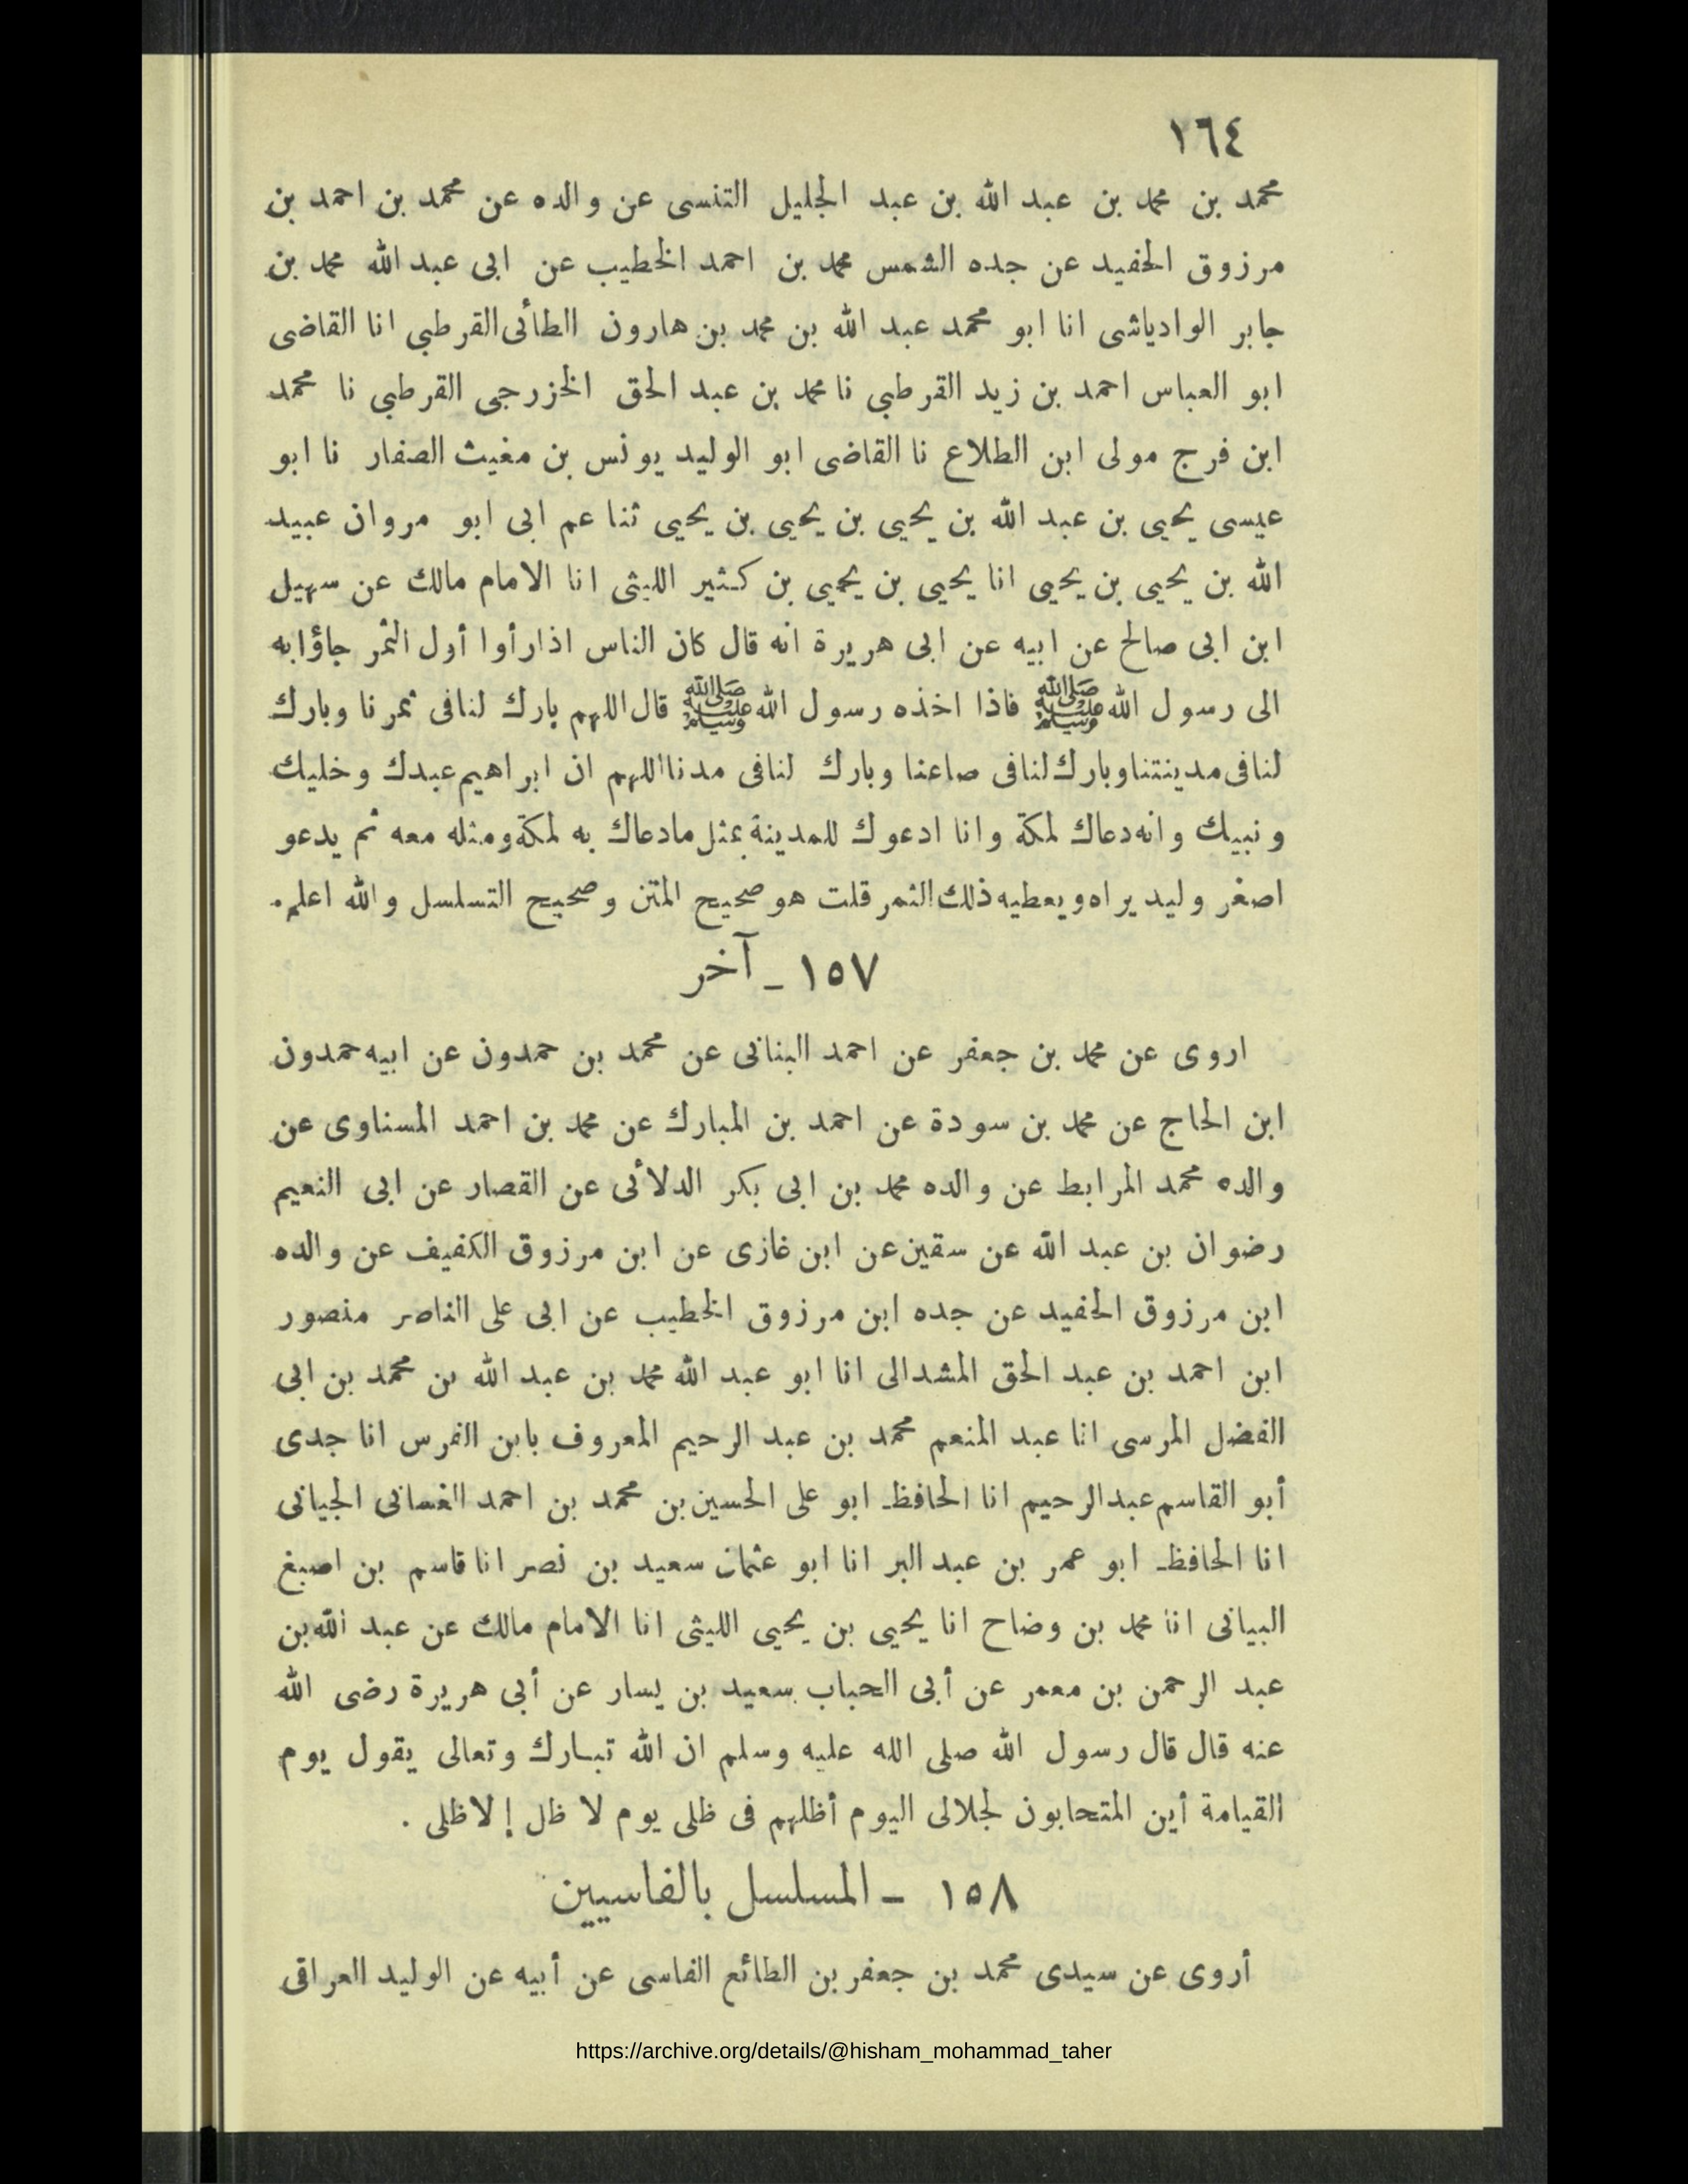 ١٦٤
محمد بن محمد بن عبد الله بن عبد الجليل التنسى عن والده عن محمد بن احمد بن
مرزوق الحفيد عن جده الشمس محمد بن احمد الخطيب عن ابى عبد الله محمد بن
جابر الوادياشى انا ابو محمد عبد الله بن محمد بن هارون الطائى القرطبي انا القاضى
ابو العباس احمد بن زيد القرطبي نا محمد بن عبد الحق الخزرجى القرطبي نا محمد
ابن فرج مولى ابن الطلاع نا القاضى ابو الوليد يونس بن مغيث الصفار نا ابو
عيسى يحيى بن عبد الله بن يحيى بن يحيى بن يحيى ثنا عم ابى ابو مروان عبيد
الله بن يحيى بن يحيى انا يحيى بن يحيى بن كثير الليثى انا الامام مالك عن سهيل
ابن ابى صالح عن ابيه عن ابى هريرة انه قال كان الناس اذا رأوا أول الثمر جاؤا به
الى رسول الله ﷺ فاذا اخذه رسول الله ﷺ قال اللهم بارك لنا فى ثمرنا وبارك
لنا فى مدينتنا وبارك لنا فى صاعنا وبارك لنا فى مدنا اللهم ان ابراهيم عبدك وخليك
ونبيك وانه دعاك لمكة وانا ادعوك للمدينة بمثل ما دعاك به لمكة ومثله معه ثم يدعو
اصغر وليد يراه ويعطيه ذلك الثمر قلت هو صحيح المتن وصحيح التسلسل والله اعلم.
١٥٧ ـ آخر
اروى عن محمد بن جعفر عن احمد البنانى عن محمد بن حمدون عن ابيه حمدون
ابن الحاج عن محمد بن سودة عن احمد بن المبارك عن محمد بن احمد المسناوى عن
والده محمد المرابط عن والده محمد بن ابى بكر الدلائى عن القصار عن ابى النعيم
رضوان بن عبد الله عن سقين عن ابن غازى عن ابن مرزوق الكفيف عن والده
ابن مرزوق الحفيد عن جده ابن مرزوق الخطيب عن ابى على الناصر منصور
ابن احمد بن عبد الحق المشدالى انا ابو عبد الله محمد بن عبد الله بن محمد بن ابى
الفضل المرسى انا عبد المنعم محمد بن عبد الرحيم المعروف بابن الفرس انا جدى
أبو القاسم عبد الرحيم انا الحافظ ابو على الحسين بن محمد بن احمد الغسانى الجيانى
انا الحافظ ابو عمر بن عبد البر انا ابو عثمان سعيد بن نصر انا قاسم بن اصبغ
البيانى انا محمد بن وضاح انا يحيى بن يحيى الليثى انا الامام مالك عن عبد الله بن
عبد الرحمن بن معمر عن أبى الحباب سعيد بن يسار عن أبى هريرة رضى الله
عنه قال قال رسول الله صلى الله عليه وسلم ان الله تبارك وتعالى يقول يوم
القيامة أين المتحابون لجلالى اليوم أظلهم فى ظلى يوم لا ظل إلا ظلى .
١٥٨ ـ المسلسل بالفاسيين
أروى عن سيدى محمد بن جعفر بن الطائع الفاسى عن أبيه عن الوليد العراقى
https://archive.org/details/@hisham_mohammad_taher